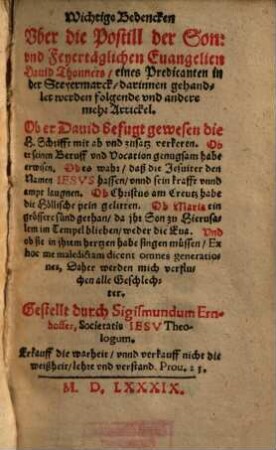 Wichtige Bedencken
Vber die Postill der Son:
vnd Feyertäglichen Euangelien
Dauid Thonners / eines Predicanten in
der Steyermarck / darinnen gehand-
let werden folgende vnd andere
mehr Artickel.
Ob er Dauid befugt gewesen die
H. Schrifft mit ab vnd zusatz verkeren. Ob
er seinen Beruff vnd Vocation genugsam habe
erwisen. Ob es wahr / daß die Jesuiter den
Namen IESVS hassen / vnnd sein krafft vnnd
ampt leugnen. Ob Christus am Creutz habe
die Höllische pein gelitten. Ob Maria ein
grössere sünd gethan / da jhr Son zu Hierusa-
lem im Tempel blieben / weder die Eua. Vnd
ob sie in jhrem hertzen habe singen müssen / Ex
hoc me maledictam dicent omnes generatio-
nes, Daher werden mich verflu-
chen alle Geschlech-
ter.
Gestellt durch Sigismundum Ern-
hoffer, Societatis IESV Theo-
logum.
Erkauff die warheit / vnnd verkauff nicht die
weißheit / lehre vnd verstand. Prou. 23.
M. D. LXXXIX.